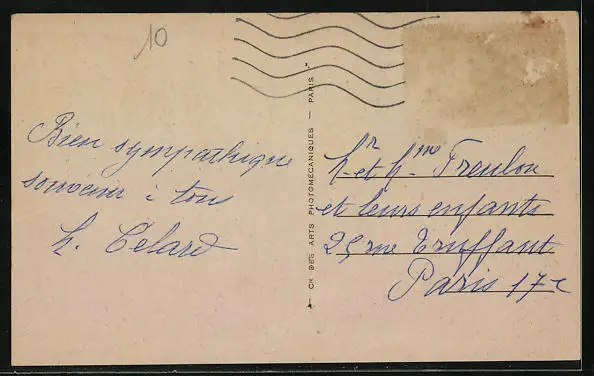 10
Bien sympathique
souvenir à tous
h. Celard
CH DES ARTS PHOTOMÉCANIQUES — PARIS
Mr et Mme Treulou
et leurs enfants
25 rue Truffaut
Paris 17e